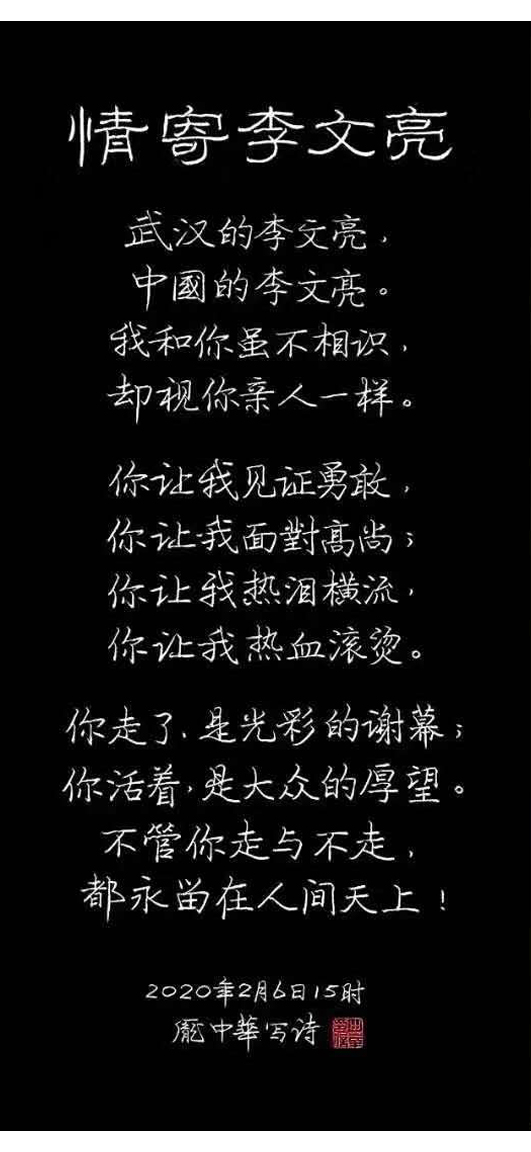 情寄李文亮
武汉的李文亮，
中國的李文亮。
我和你虽不相识，
却视你亲人一样。
你让我见证勇敢，
你让我面對高尚；
你让我热泪横流，
你让我热血滚烫。
你走了，是光彩的谢幕；
你活着，是大众的厚望。
不管你走与不走，
都永留在人间天上！
2020年2月6日15时
庞中華写诗